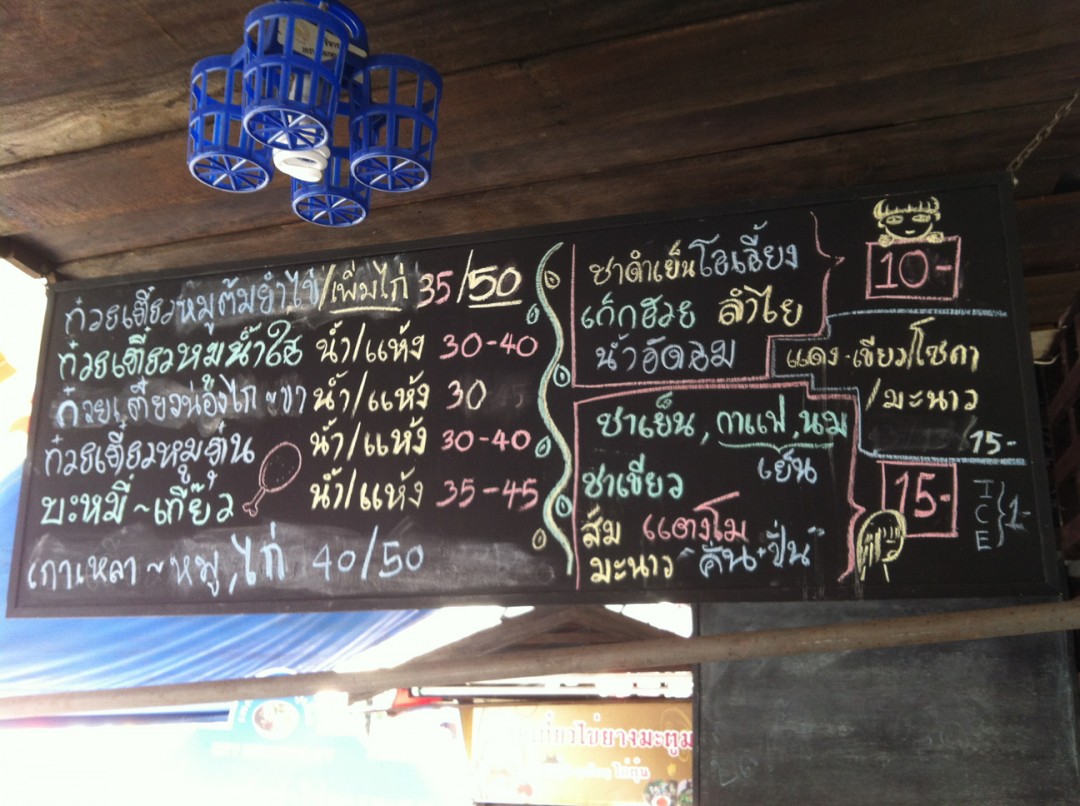 ก๋วยเตี๋ยวหมูต้มยำไข่/เพิ่มไก่ 35/50
ก๋วยเตี๋ยวหมูน้ำใส น้ำ/แห้ง 30-40
ก๋วยเตี๋ยวน่องไก่~ขา น้ำ/แห้ง 30
ก๋วยเตี๋ยวหมูตุ๋น น้ำ/แห้ง 30-40
บะหมี่~เกี๊ยว น้ำ/แห้ง 35-45
เกาเหลา~หมู,ไก่ 40/50
ชาดำเย็น โอเลี้ยง
เก็กฮวย ลำไย
น้ำอัดลม
10-
แดง-เขียว/โซดา
/มะนาว
15-
ชาเย็น, กาแฟ, นม
เย็น
ชาเขียว
ส้ม แตงโม
มะนาว "คั้น+ปั่น"
15-
ICE 1-
ไข่ยางมะตูม
ไก่ตุ๋น